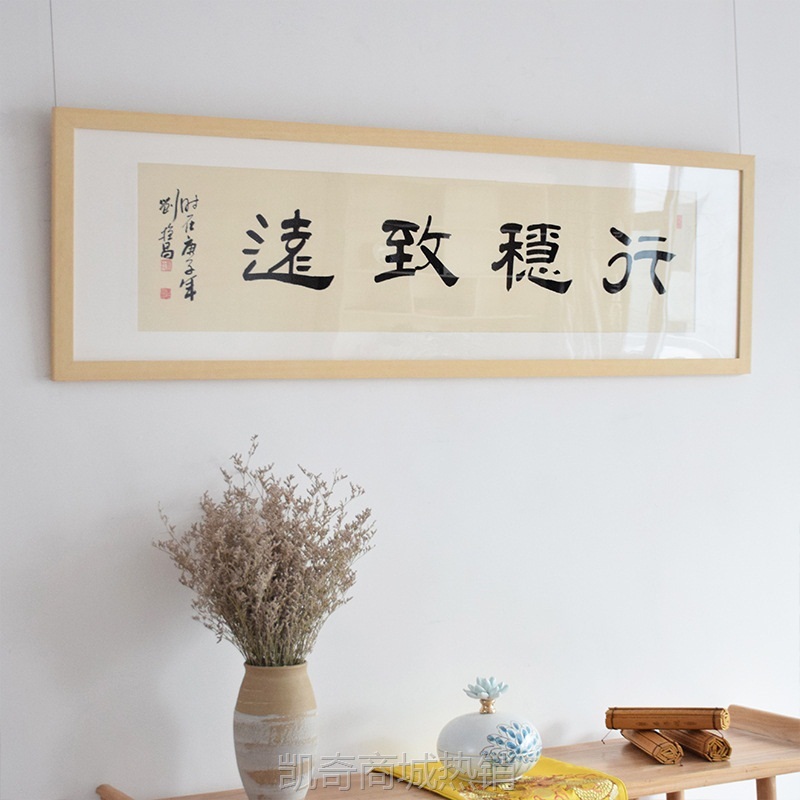 行穩致遠
時在庚子年
劉
凯奇商城热销